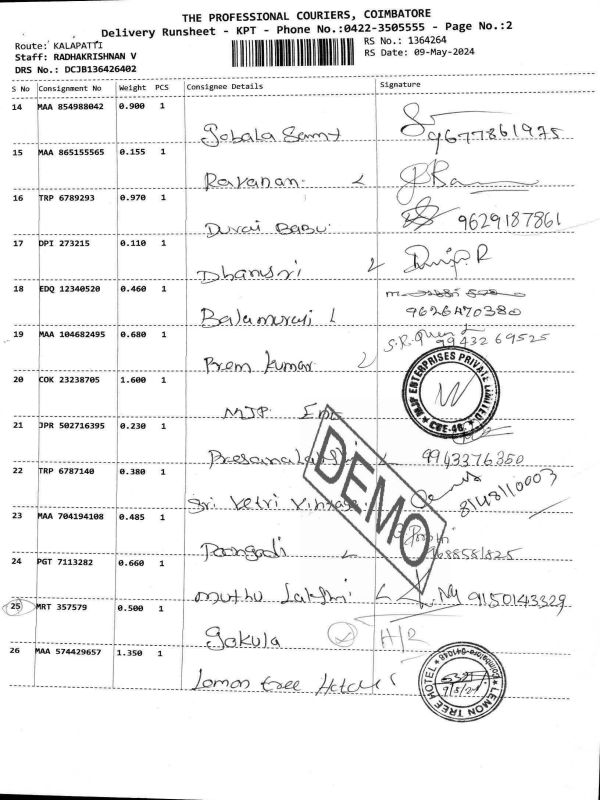 THE PROFESSIONAL COURIERS, COIMBATORE
Delivery Runsheet - KPT - Phone No.:0422-3505555 - Page No.:2
Route: KALAPATTI
RS No.: 1364264
Staff: RADHAKRISHNAN V
RS Date: 09-May-2024
DRS No.: DCJB136426402
S No Consignment No Weight PCS Consignee Details Signature
14 MAA 854988042 0.900 1
Gobala Samy 9677861975
15 MAA 865155565 0.155 1
Ravanan
16 TRP 6789293 0.970 1
Durai Babu 9629187861
17 DPI 273215 0.110 1
Dhansri
18 EDQ 12340520 0.460 1
Balamurali 9626470380
19 MAA 104682495 0.680 1
Prem Kumar S.R. 9943269525
20 COK 23238705 1.600 1
MJP Ent
MJP ENTERPRISES PRIVATE LIMITED
CBE-48
21 JPR 502716395 0.230 1
9943376350
22 TRP 6787140 0.380 1
Sri Vetri 8148110003
23 MAA 704194108 0.485 1
Poongodi
24 PGT 7113282 0.660 1
Muthu Lakshmi 9150143329
25 MRT 357579 0.500 1
Gokula H/R
26 MAA 574429657 1.350 1
Lemon tree Hotel
LEMON TREE HOTEL
Coimbatore-641048
DEMO